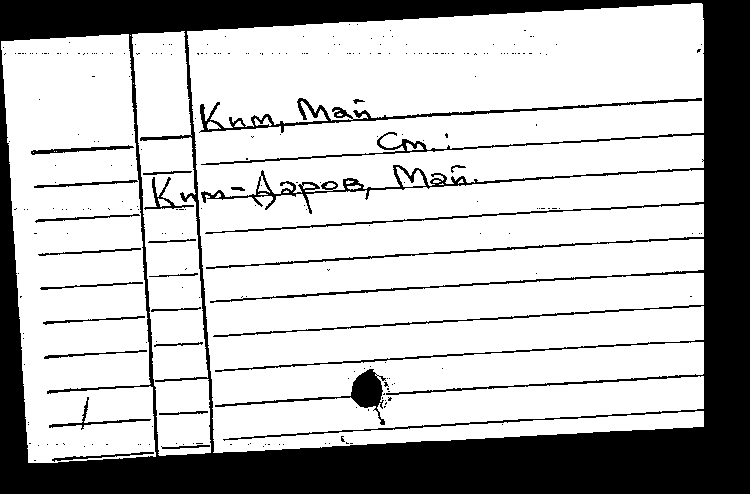 Ким, Май.
См.:
Ким-Даров, Май.